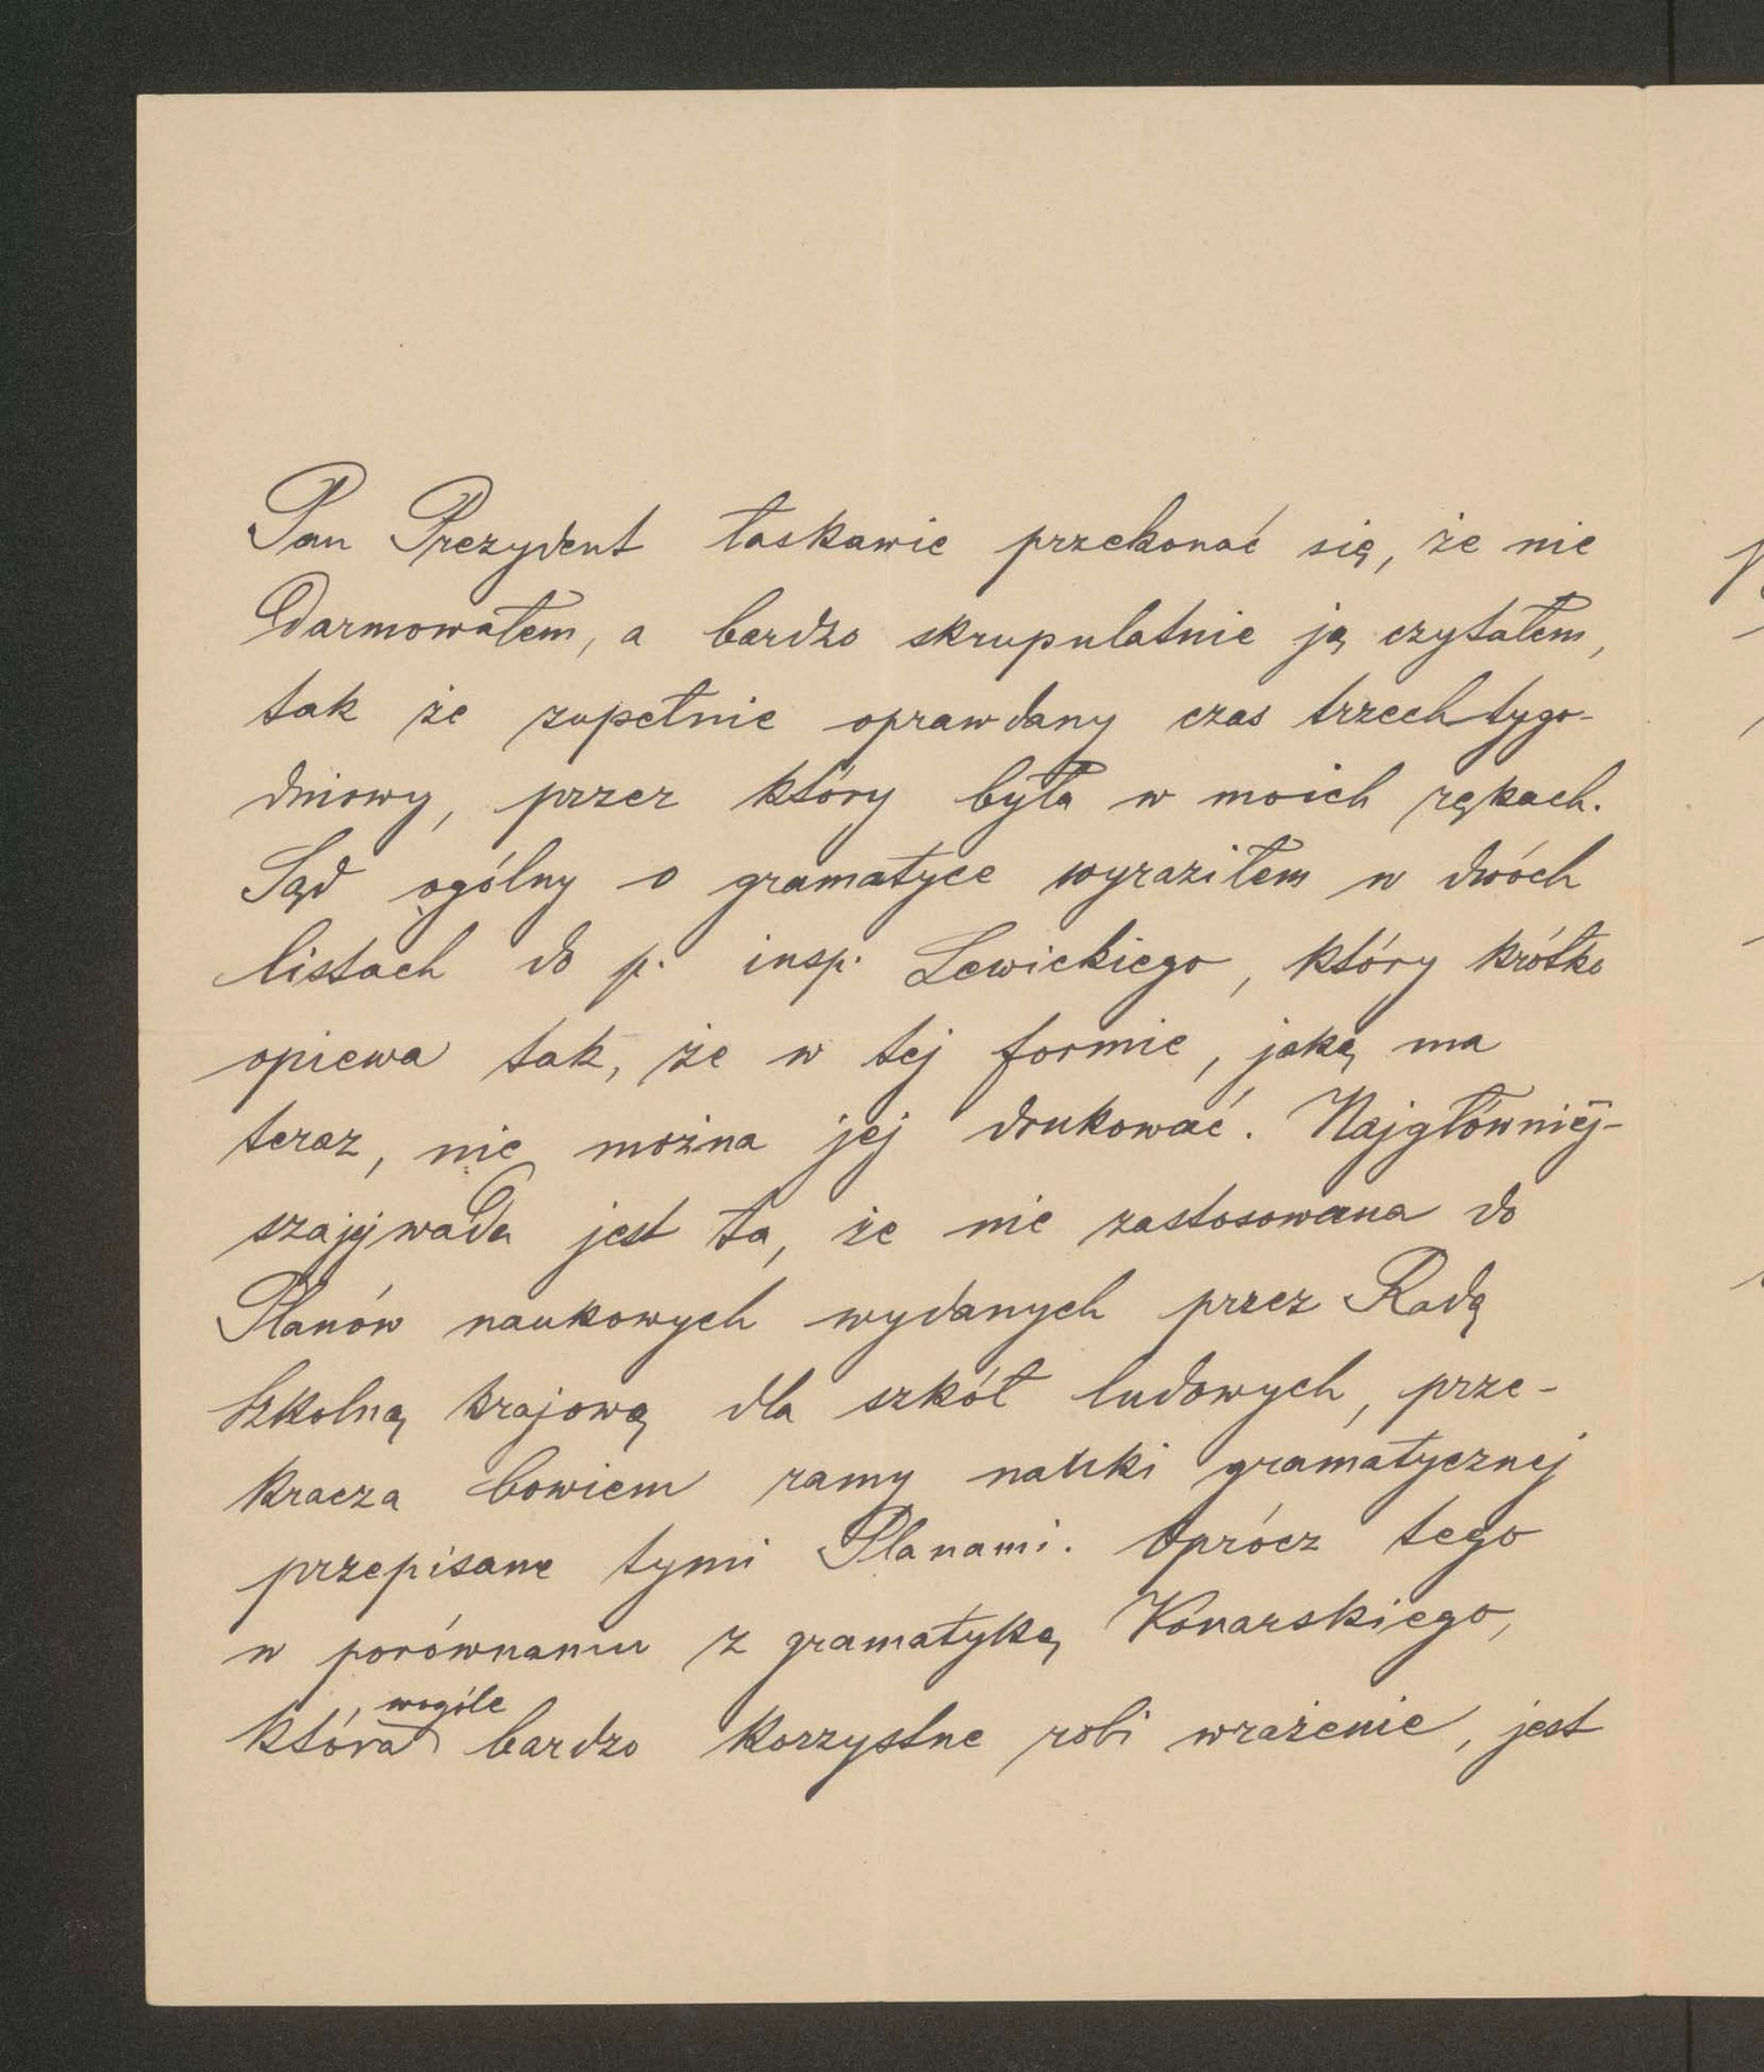 Pan Prezydent łaskawie przekonać się, że nie
darmowałem, a bardzo skrupulatnie ją czytałem,
tak że zupełnie oprawdany czas trzechtygo-
dniowy, przez który była w moich rękach.
Sąd ogólny o gramatyce wyraziłem w dwóch
listach do p. insp. Lewickiego, który krótko
opiewa tak, że w tej formie, jaką ma
teraz, nie można jej drukować. Najgłówniej-
szą jej wada jest ta, że nie zastosowana do
Planów naukowych wydanych przez Radę
Szkolną krajową dla szkół ludowych, prze-
kracza bowiem ramy nauki gramatycznej
przepisane tymi Planami. Oprócz tego
w porównaniu z gramatyką Konarskiego,
wogóle
która bardzo korzystne robi wrażenie, jest